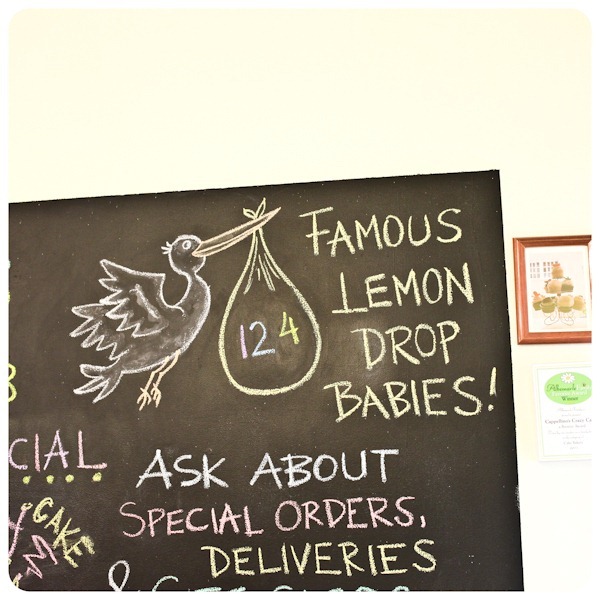 FAMOUS
LEMON
DROP
BABIES!
124
8
CIAL
CAKE
ASK ABOUT
SPECIAL ORDERS,
DELIVERIES
&
Winner